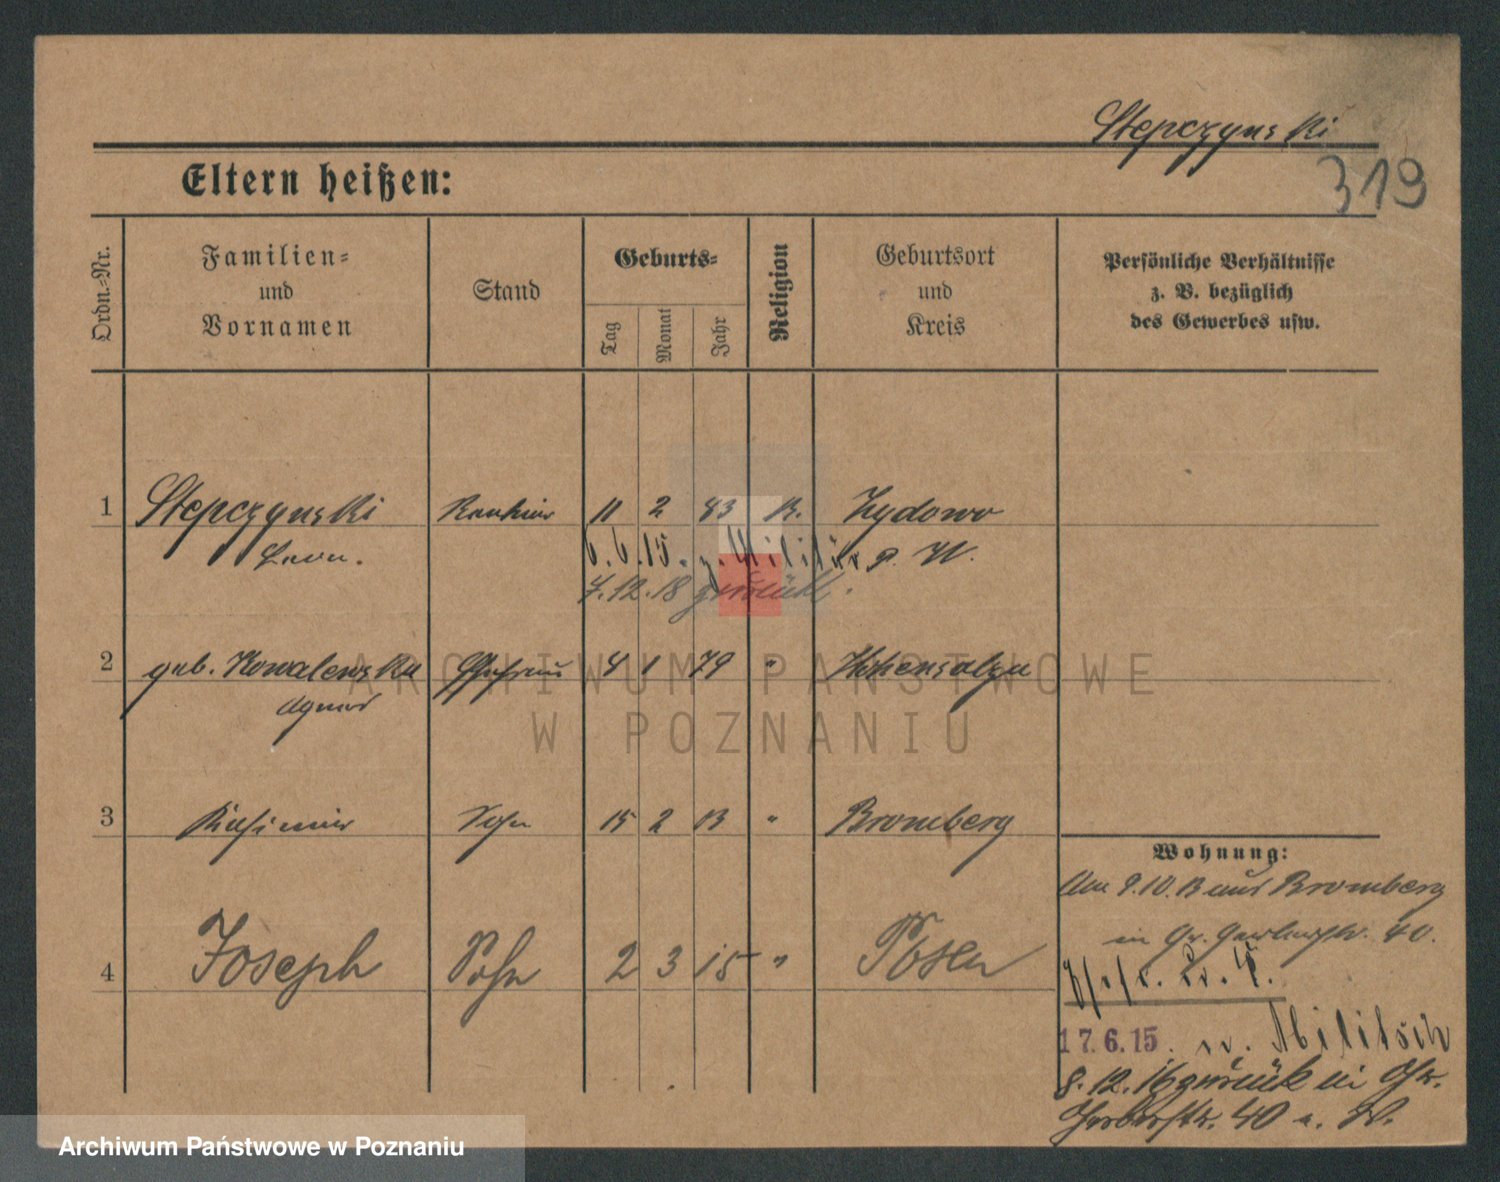 Stepczynski
319
Eltern heißen:
Ordn.-Nr.
Familien-
und
Vornamen
Stand
Geburts-
Tag
Monat
Jahr
Religion
Geburtsort
und
Kreis
Persönliche Verhältnisse
z. B. bezüglich
des Gewerbes usw.
1 Stepczynski 11 2 83 K. Zydowo
Leon. 6.6.15. z. Militär
7.12.18 zurück.
2 geb. Kowalewska Ehefrau 4 1 79 " Hohensalza
Agnes
3 Kasimir Sohn 15 2 13 " Bromberg
Wohnung:
Am 9.10.13 aus Bromberg
in Gr. Gerberstr. 40.
4 Joseph Sohn 2 3 15 " Posen
17.6.15. n. Militsch
8.12.16 zurück in Gr.
Gerberstr. 40
ARCHIWUM PAŃSTWOWE
W POZNANIU
Archiwum Państwowe w Poznaniu